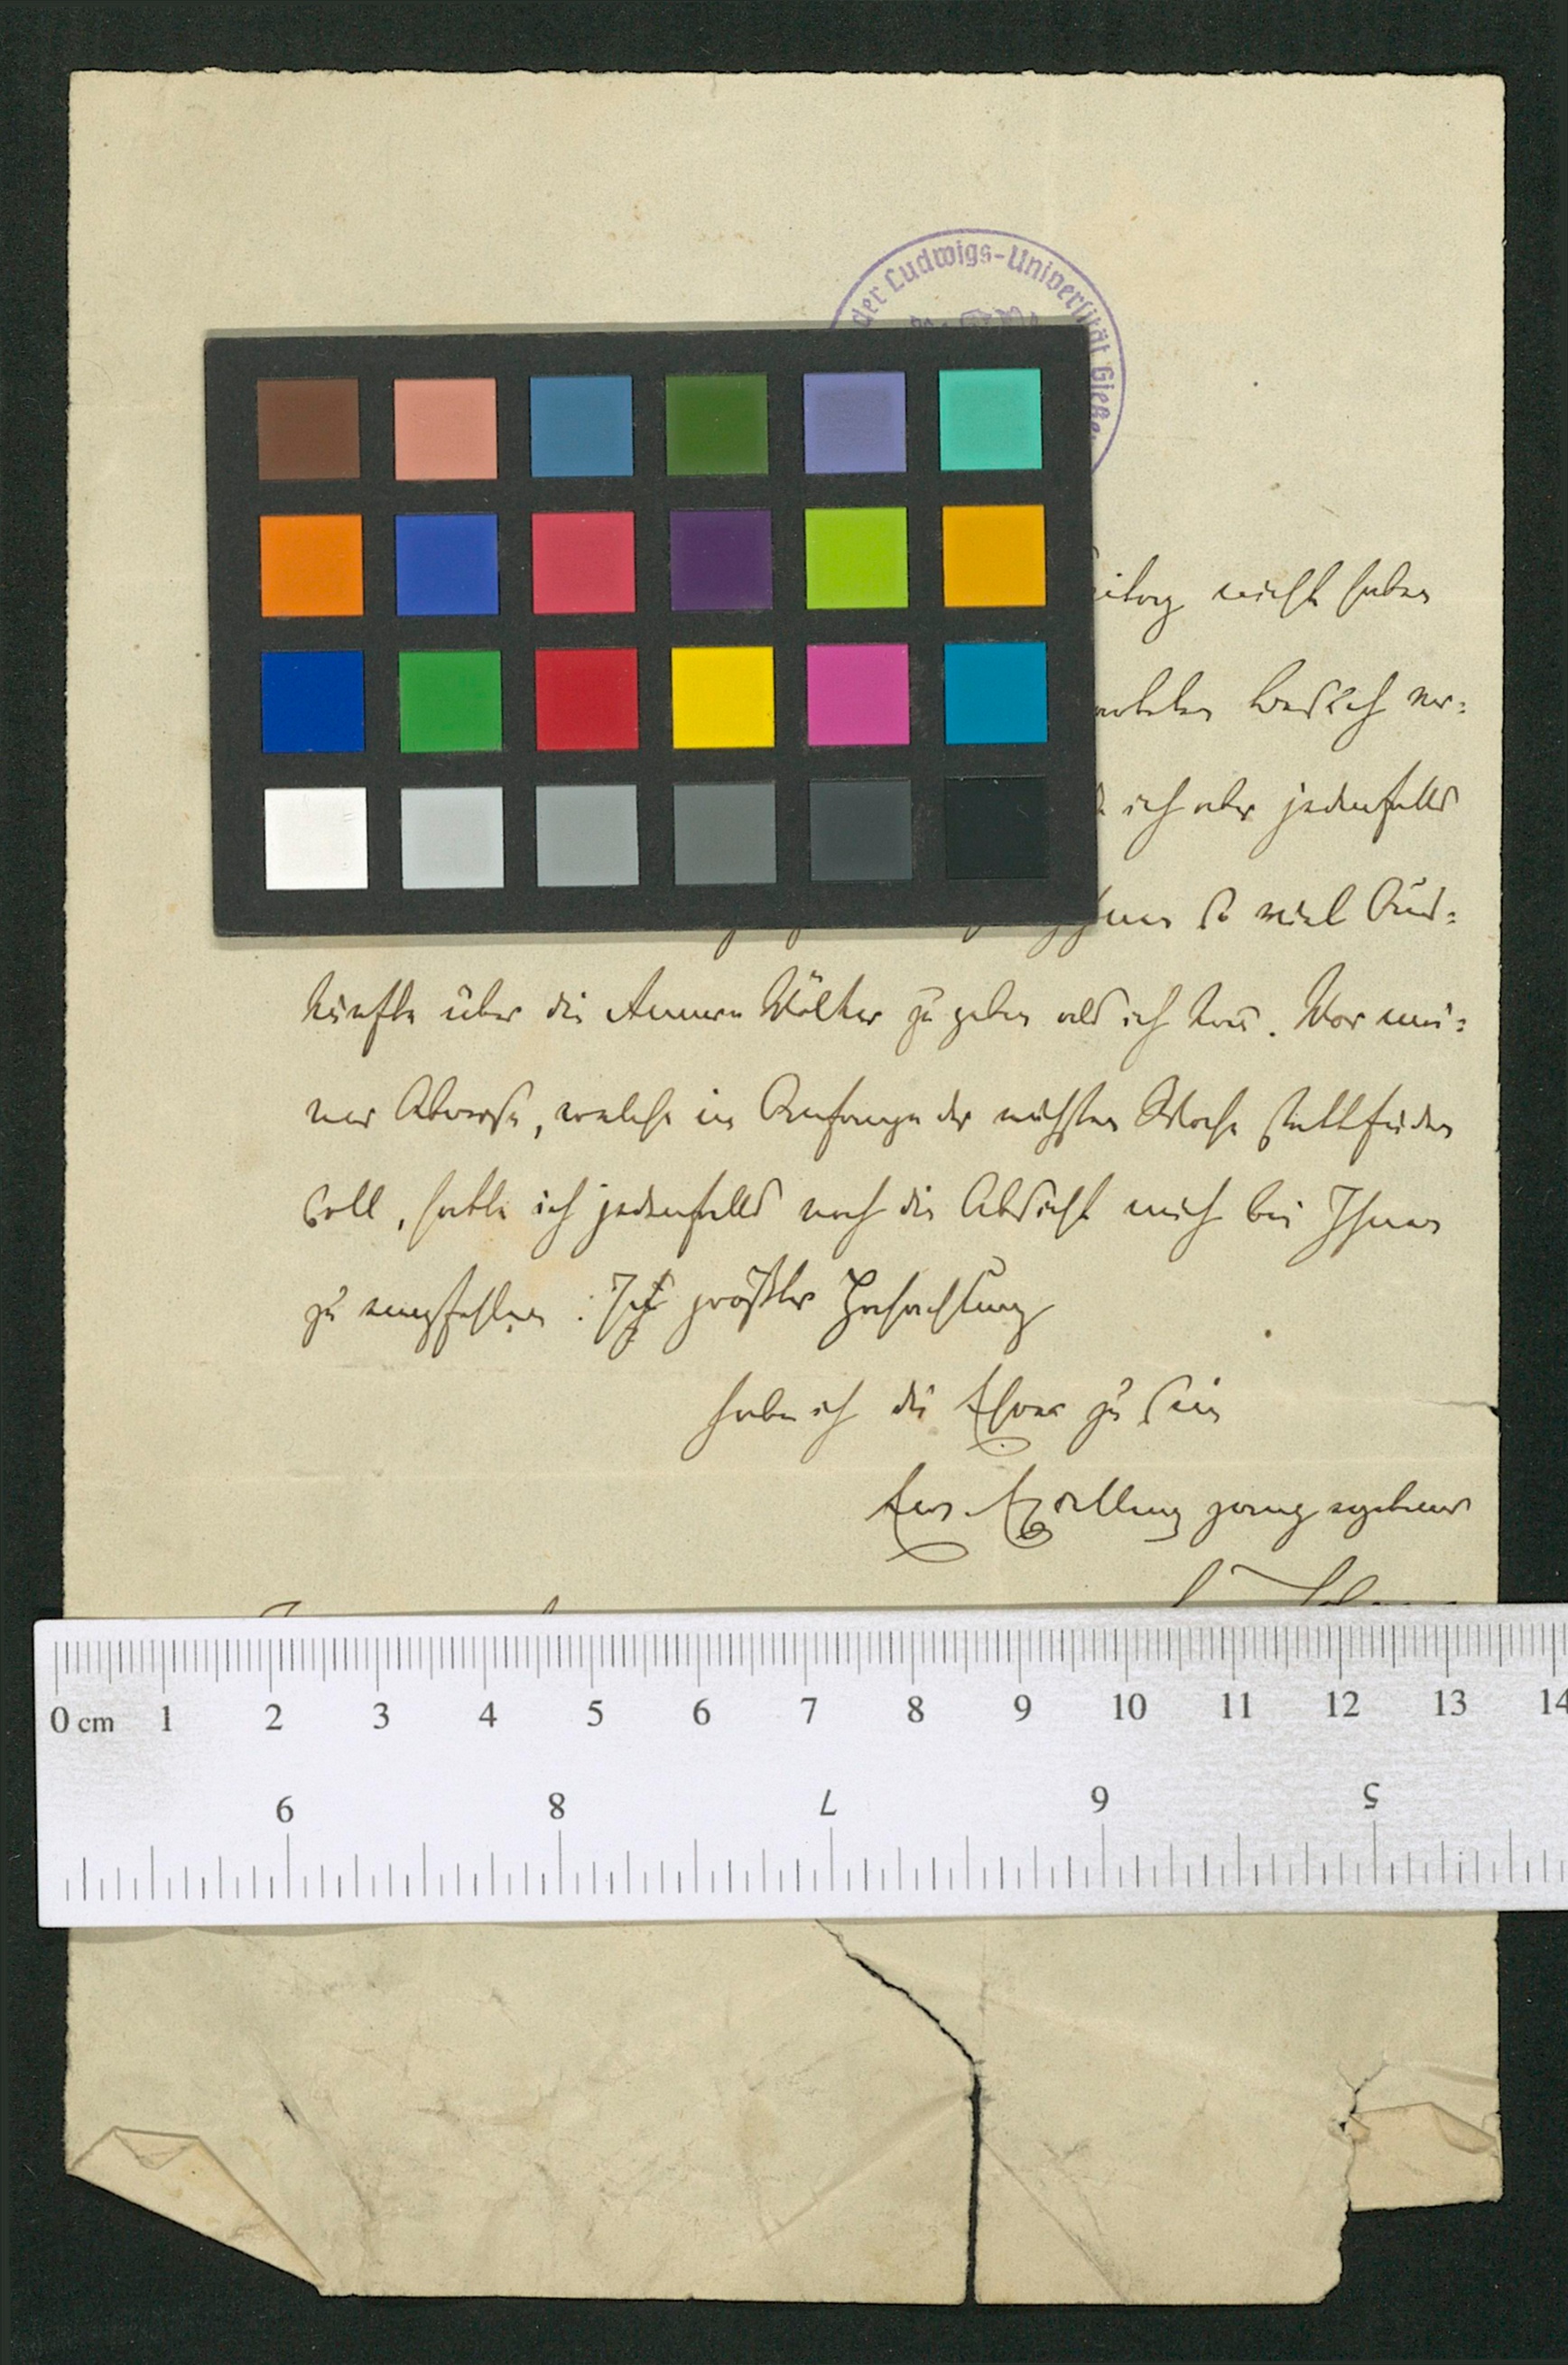 der Ludwigs-Universität Gieße
nicht haben
ver-
ich aber jedenfalls
so viel Aus-
künfte über die Amme Völker zu geben als ich kañ. Vor mei-
ner Abreise, welche im Anfange der nächsten Woche stattfinden
soll, hatte ich jedenfalls noch die Absicht mich bei Ihnen
zu empfehlen. größter Hochachtung
habe ich die Ehre zu sein
Eur. Exzellenz ganz ergebener
0 cm 1 2 3 4 5 6 7 8 9 10 11 12 13 14
9 8 7 6 5